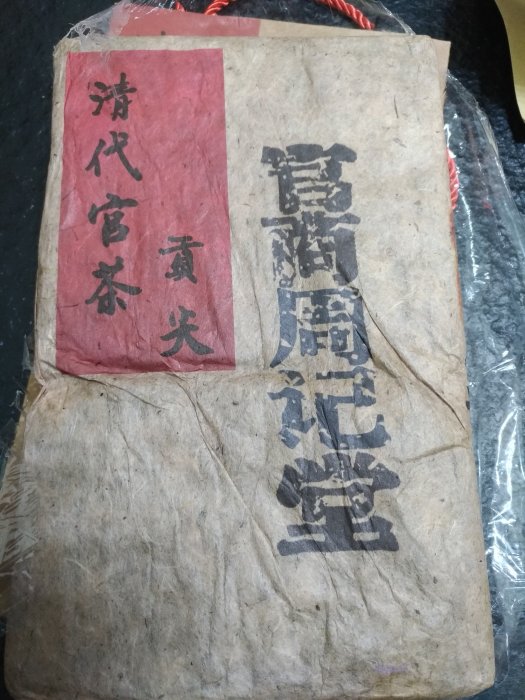 官商周记堂
清代官茶
贡尖